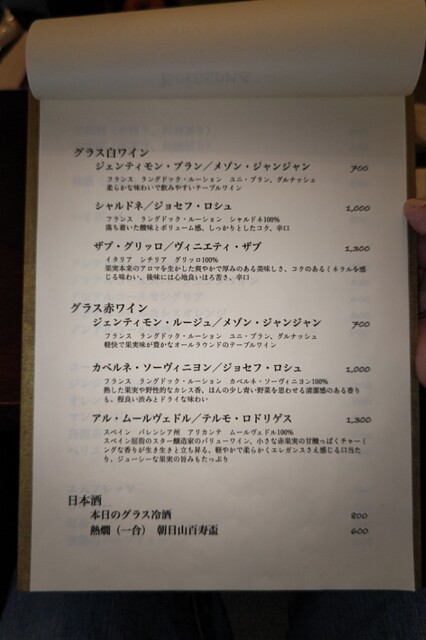 グラス白ワイン
ジェンティモン・ブラン／メゾン・ジャンジャン 700
フランス ラングドック・ルーション ユニ・ブラン、グルナッシュ
柔らかな味わいで飲みやすいテーブルワイン
シャルドネ／ジョセフ・ロシュ 1,000
フランス ラングドック・ルーション シャルドネ100%
落ち着いた酸味とボリューム感、しっかりとしたコク、辛口
ザブ・グリッロ／ヴィニエティ・ザブ 1,300
イタリア シチリア グリッロ100%
果実本来のアロマを生かした爽やかで厚みのある美味しさ、コクのあるミネラルを感
じる味わい、後味には心地良いほろ苦さ、辛口
グラス赤ワイン
ジェンティモン・ルージュ／メゾン・ジャンジャン 700
フランス ラングドック・ルーション ユニ・ブラン、グルナッシュ
軽快で果実味が豊かなオールラウンドのテーブルワイン
カベルネ・ソーヴィニヨン／ジョセフ・ロシュ 1,000
フランス ラングドック・ルーション カベルネ・ソーヴィニヨン100%
熟した果実や野性的なカシス香、ほんの少し青い野菜を思わせる清潔感のある香り
も、程良い渋みとドライな味わい
アル・ムールヴェドル／テルモ・ロドリゲス 1,300
スペイン バレンシア州 アリカンテ ムールヴェドル100%
スペイン屈指のスター醸造家のバリューワイン、小さな赤果実の甘酸っぱくチャーミ
ングな香りが生き生きと立ち昇る、軽やかで柔らかくエレガンスさえ感じる口当た
り、ジューシーな果実の旨みもたっぷり
日本酒
本日のグラス冷酒 800
熱燗（一合） 朝日山百寿盃 600